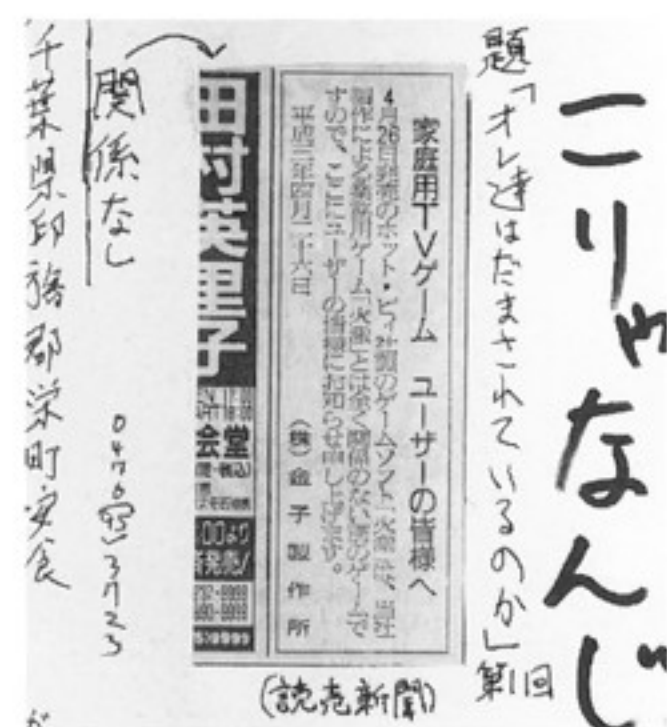 こりゃなんじ
題「オレ達はだまされているのか」第1回
家庭用TVゲーム ユーザーの皆様へ
4月26日発売のホット・ビィ社製のゲームソフト「火激」は、当社
製作による業務用ゲーム「火激」とは全く関係のない別のゲームで
すので、ここにユーザーの皆様にお知らせ申し上げます。
平成三年四月二十六日
(株)金子製作所
(読売新聞)
田村英里子
会堂
関係なし
千葉県印旛郡栄町安食